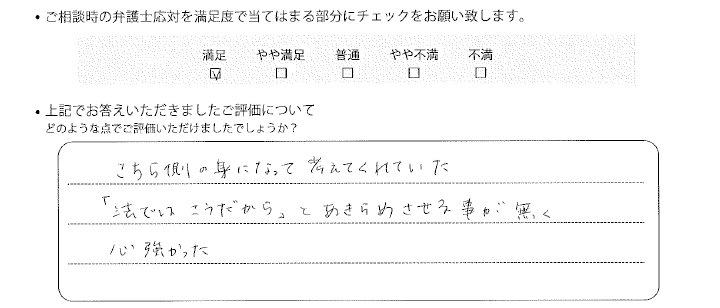 ・ご相談時の弁護士応対を満足度で当てはまる部分にチェックをお願い致します。
満足 やや満足 普通 やや不満 不満
☑ ☐ ☐ ☐ ☐
・上記でお答えいただきましたご評価について
どのような点でご評価いただけましたでしょうか？
こちら側の身になって考えてくれていた
「法ではこうだから」とあきらめさせる事が無く
心強かった